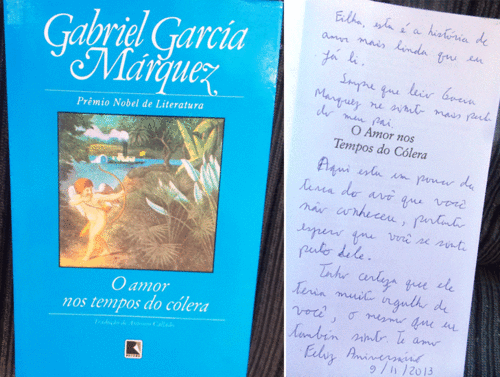 Gabriel García
Márquez
Prêmio Nobel de Literatura
O amor
nos tempos do cólera
Tradução de Antonio Callado
RECORD
Filha, esta é a história de
amor mais linda que eu
já li.
Sempre que leio Garcia
Marquez me sinto mais perto
do meu pai.
O Amor nos
Tempos do Cólera
Aqui esta um pouco da
terra do avô que você
não conheceu, portanto
espero que você se sinta
perto dele.
Tenho certeza que ele
teria muito orgulho de
você, o mesmo que eu
também sinto. Te amo
Feliz Aniversário
9/11/2013